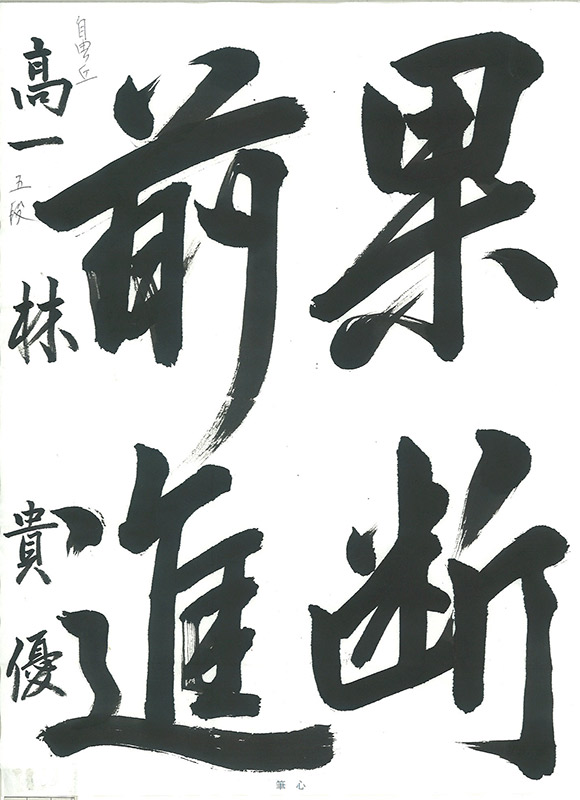 果断
前進
自由ヶ丘
高一 五段 林 貴優
心筆